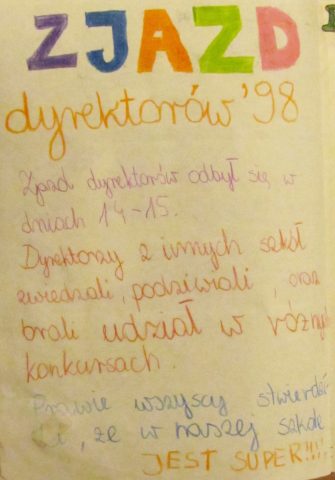 ZJAZD
dyrektorów '98
Zjazd dyrektorów odbył się w
dniach 14-15.
Dyrektorzy z innych szkół
zwiedzali, podziwiali, oraz
brali udział w różnych
konkursach.
Prawie wszyscy stwierdzi
li, że w naszej szkole
JEST SUPER!!!!